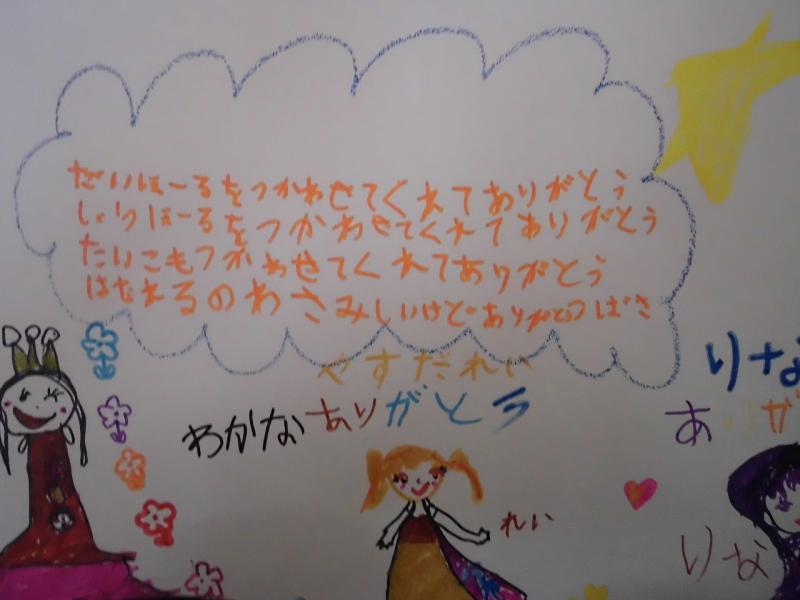 だいぼーるをつかわせてくれてありがとう
しょりぼーるをつかわせてくれてありがとう
たいこもつかわせてくれてありがとう
はなれるのわさみしいけどありがとつばさ
やすだれい
わかなありがとう
りな
ありが
れい
りな